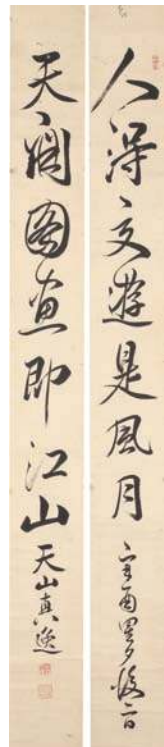 人得交遊是風月
辛酉
天開圖畫即江山
天山真逸